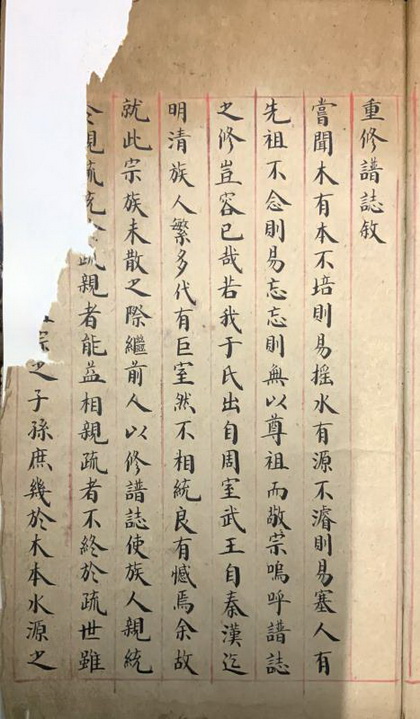 重修譜誌敘
嘗聞木有本不培則易搖水有源不濬則易塞人有
先祖不念則易忘忘則無以尊祖而敬宗嗚呼譜誌
之修豈容已哉若我于氏出自周室武王自秦漢迄
明清族人繁多代有巨室然不相統良有憾焉余故
就此宗族未散之際繼前人以修譜誌使族人親統
於親疏統於疏親者能益相親疏者不終於疏世雖
宗之子孫庶幾於木本水源之